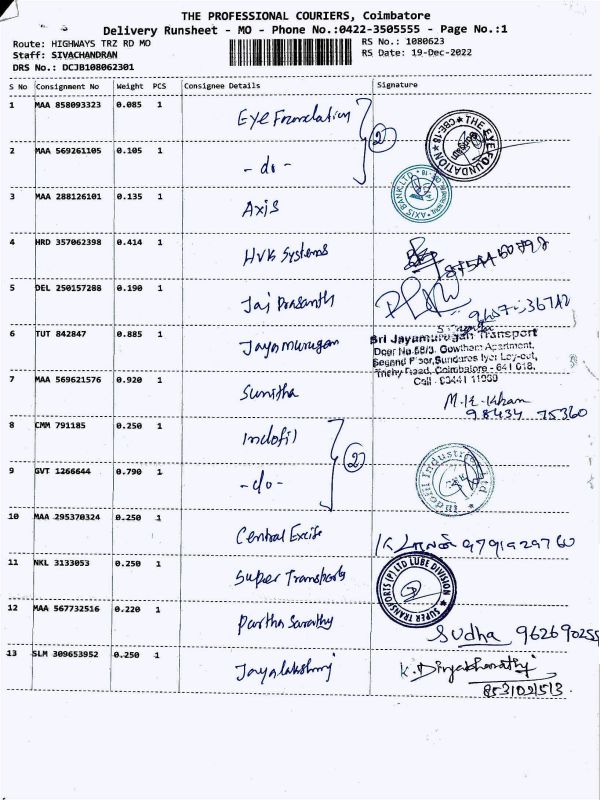 THE PROFESSIONAL COURIERS, Coimbatore
Delivery Runsheet - MO - Phone No.:0422-3505555 - Page No.:1
Route: HIGHWAYS TRZ RD MO
RS No.: 1080623
Staff: SIVACHANDRAN
RS Date: 19-Dec-2022
DRS No.: DCJB108062301
S No Consignment No Weight PCS Consignee Details Signature
1 MAA 858093323 0.085 1 Eye Foundation
2
THE EYE FOUNDATION ★ CBE-18 ★
2 MAA 569261105 0.105 1 - do -
3 MAA 288126101 0.135 1 Axis
AXIS BANK LTD.
4 HRD 357062398 0.414 1 HVK Systems
5 DEL 250157288 0.190 1 Jai Prasanth
6 TUT 842847 0.885 1 Jayamurugan
Sri Jayamurugan Transport
Door No.58/3, Gowtham Apartment,
Second Floor, Sundares Iyer Lay-out,
Trichy Road, Coimbatore - 641 018.
7 MAA 569621576 0.920 1 Sunitha
M.K. Khan
98434 75360
8 CMM 791185 0.250 1 Indofil
2
Indofil Industries Ltd
9 GVT 1266644 0.790 1 - do -
10 MAA 295370324 0.250 1 Central Excise
9791929760
11 NKL 3133053 0.250 1 Super Transports
SUPER TRANSPORTS (P) LTD LUBE DIVISION
12 MAA 567732516 0.220 1 Partha Sarathy
Sudha 962690255
13 SLM 309653952 0.250 1 Jayalakshmi
K. Divyabharathi